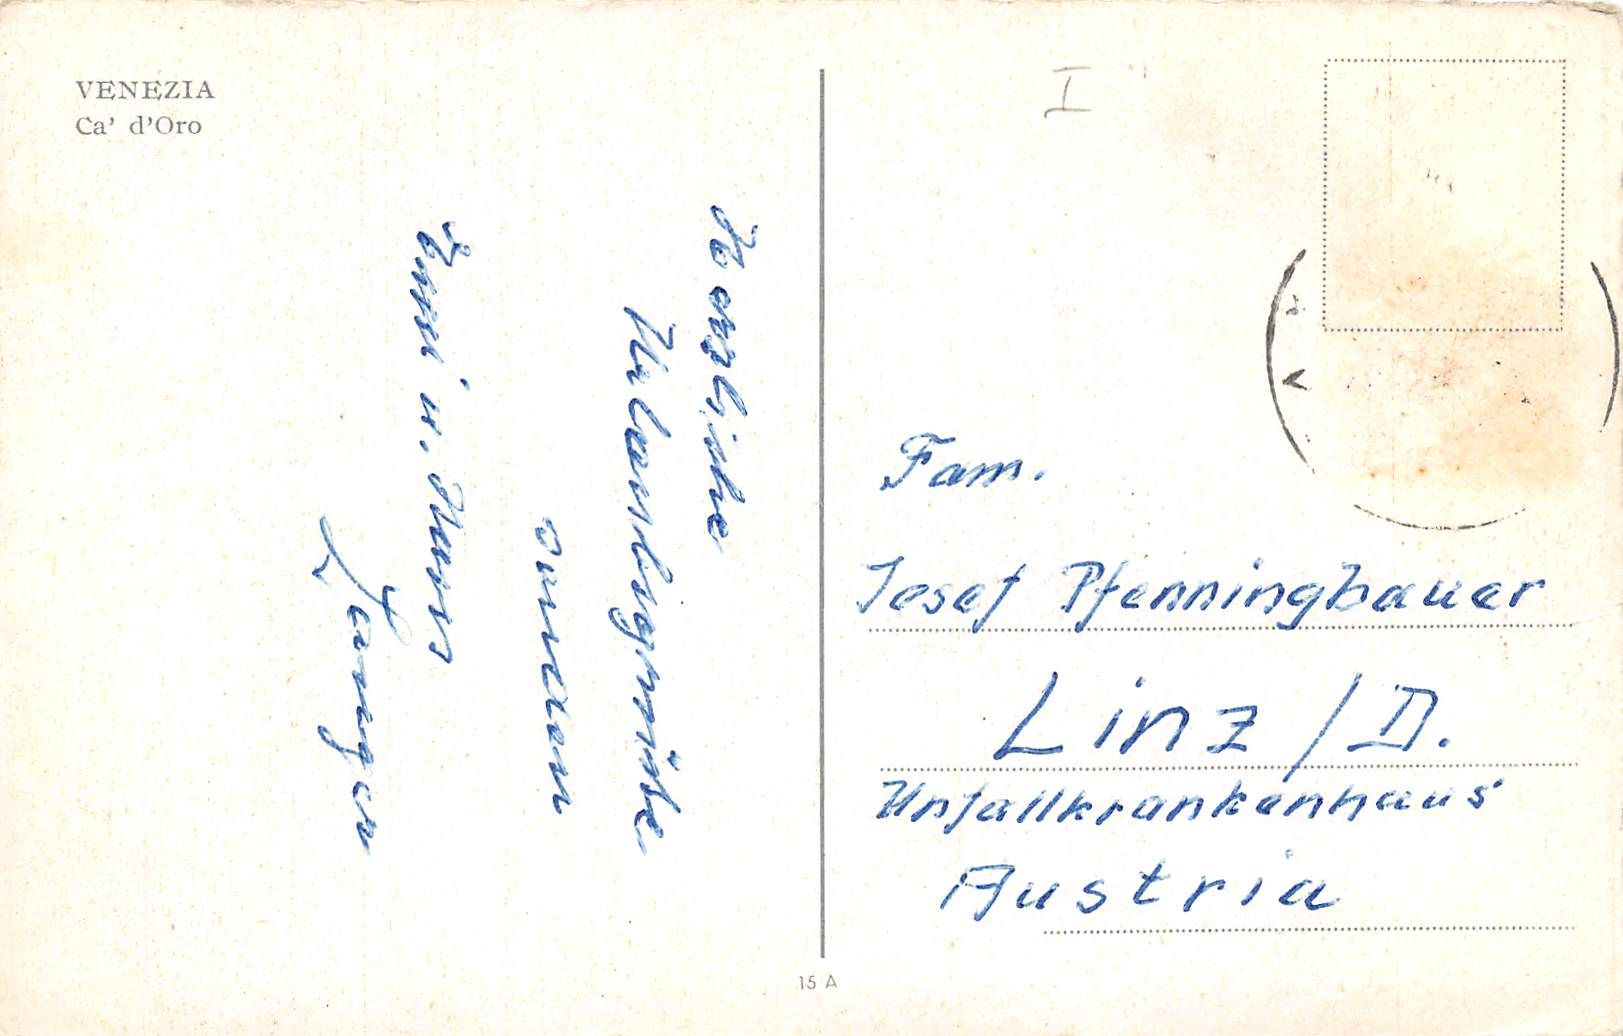 VENEZIA
Ca' d'Oro
Herzliche
Urlaubsgrüße
senden
Emmi u. Hans
I
Fam.
Josef Pfenningbauer
Linz / D.
Unfallkrankenhaus
Austria
15 A